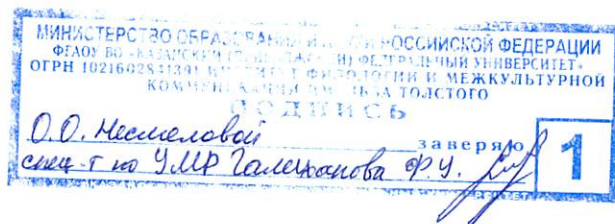 МИНИСТЕРСТВО ОБРАЗОВАНИЯ И НАУКИ РОССИЙСКОЙ ФЕДЕРАЦИИ
ФГАОУ ВО «КАЗАНСКИЙ (ПРИВОЛЖСКИЙ) ФЕДЕРАЛЬНЫЙ УНИВЕРСИТЕТ»
ОГРН 1021602841391 ИНСТИТУТ ФИЛОЛОГИИ И МЕЖКУЛЬТУРНОЙ
КОММУНИКАЦИИ ИМ. ЛЬВА ТОЛСТОГО
ПОДПИСЬ
О.О. Несмеловой заверяю 1
спец-т по УМР Ф.У.